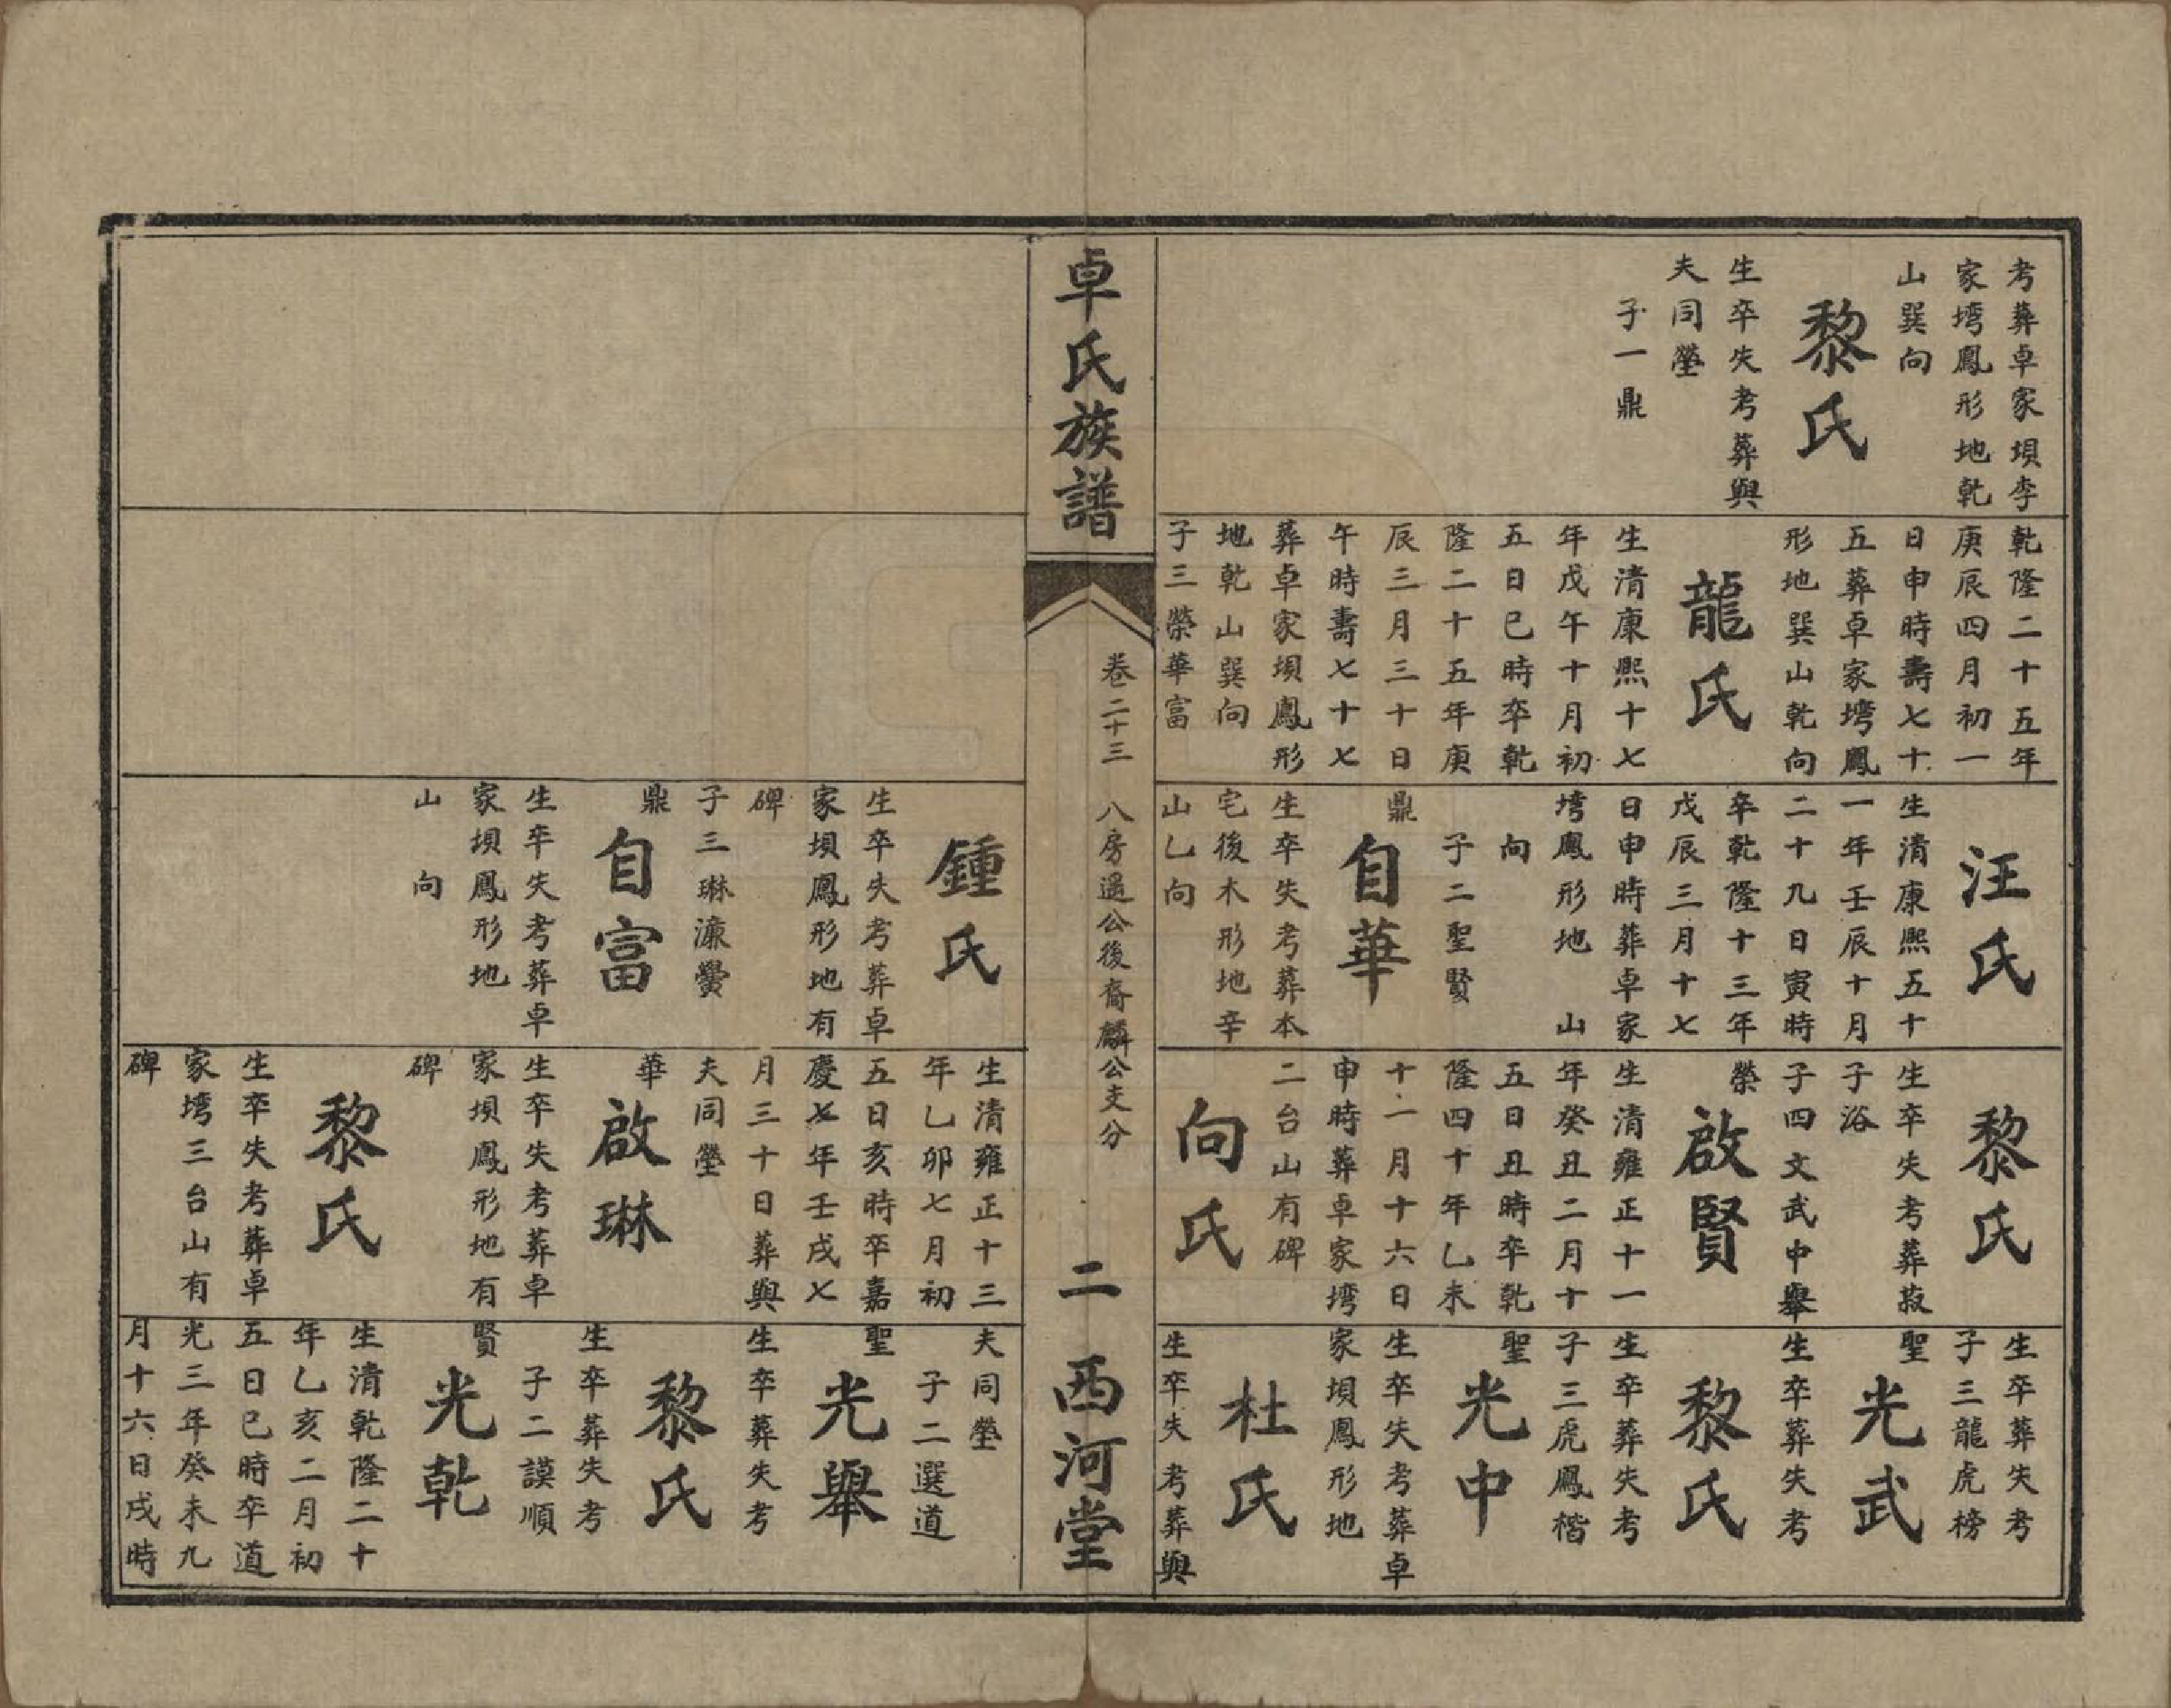 考葬卓家垻李
家塆鳳形地乾
山巽向
黎氏
生卒失考葬與
夫同塋
子一鼎
乾隆二十五年
庚辰四月初一
日申時壽七十
五葬卓家塆鳳
形地巽山乾向
龍氏
生清康熙十七
年戊午十月初
五日巳時卒乾
隆二十五年庚
辰三月三十日
午時壽七十七
葬卓家垻鳳形
地乾山巽向
子三榮華富
汪氏
生清康熙五十
一年壬辰十月
二十九日寅時
卒乾隆十三年
戊辰三月十七
日申時葬卓家
塆鳳形地　山
向
子二聖賢
鼎
自華
生卒失考葬本
宅後木形地辛
山乙向
黎氏
生卒失考葬菽
子浴
子四文武中舉
榮
啟賢
生清雍正十一
年癸丑二月十
五日丑時卒乾
隆四十年乙未
十一月十六日
申時葬卓家塆
二台山有碑
向氏
生卒葬失考
子三龍虎榜
聖
光武
生卒葬失考
黎氏
生卒葬失考
子三虎鳳楷
聖
光中
生卒失考葬卓
家垻鳳形地
杜氏
生卒失考葬與
卓氏族譜
卷二十三　八房遥公後裔麟公支分
二　西河堂
鍾氏
生卒失考葬卓
家垻鳳形地有
碑
子三琳濂黌
鼎
自富
生卒失考葬卓
家垻鳳形地
山　向
生清雍正十三
年乙卯七月初
五日亥時卒嘉
慶七年壬戌七
月三十日葬與
夫同塋
華
啟琳
生卒失考葬卓
家垻鳳形地有
碑
黎氏
生卒失考葬卓
家塆三台山有
碑
夫同塋
子二選道
聖
光舉
生卒葬失考
黎氏
生卒葬失考
子二謨順
賢
光乾
生清乾隆二十
年乙亥二月初
五日巳時卒道
光三年癸未九
月十六日戌時